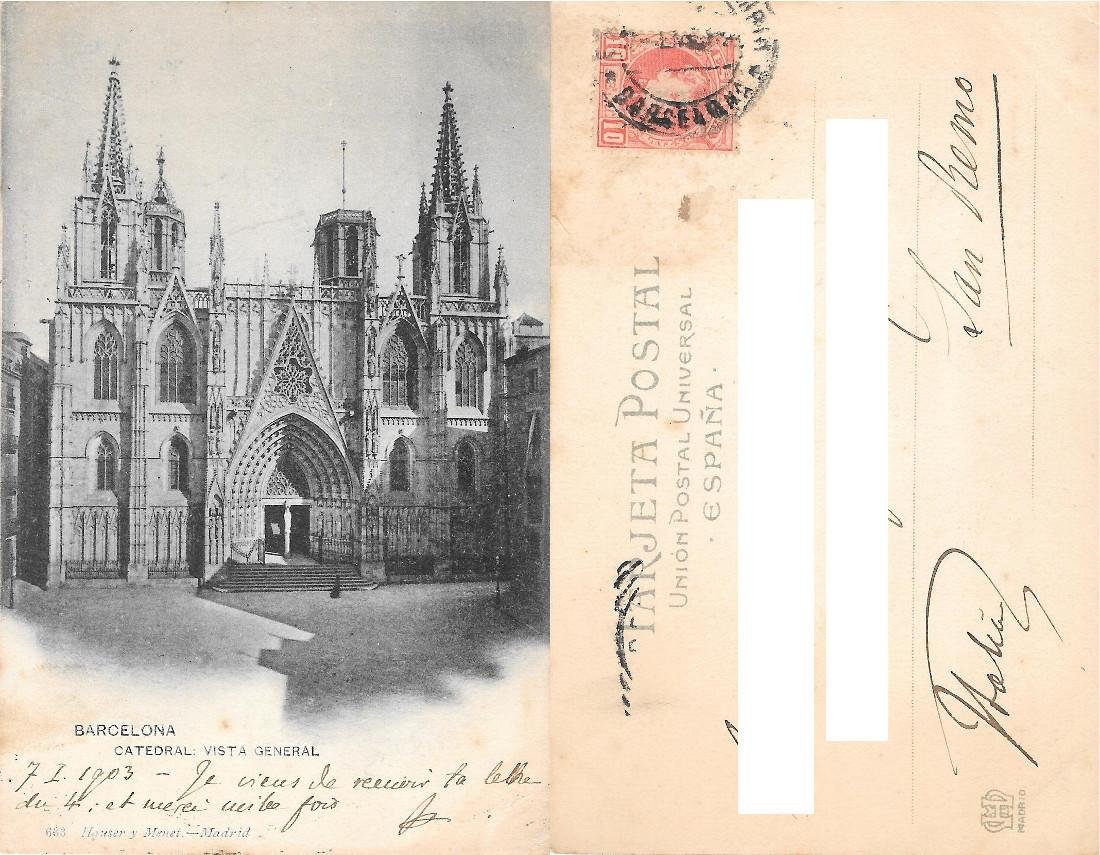 BARCELONA
CATEDRAL: VISTA GENERAL
7 I. 1903 – Je viens de recevoir ta lettre
du 4; et merci mille fois
633 Hauser y Menet.—Madrid
10 10
BARCELONA
TARJETA POSTAL
UNIÓN POSTAL UNIVERSAL
· ESPAÑA ·
San Remo
MADRID